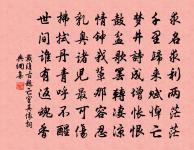 求名求利兩茫茫
千里歸來賦悼亡
夢井詩成增悵恨
鼓盆歌罷轉淒涼
情鍾我輩那容忍
乳臭諸兒最可傷
拂拭丹青呼不醒
世間誰有返魂香
戴復古題亡室真像詞
典網集